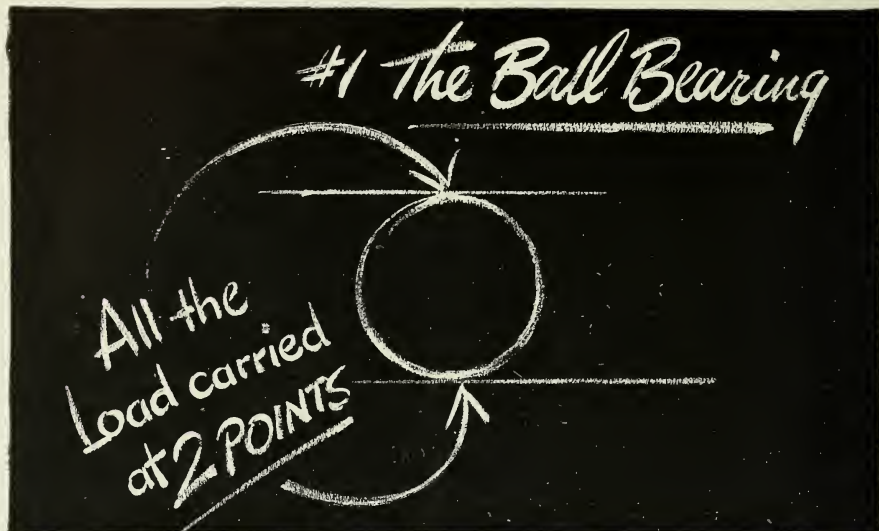 #1 The Ball Bearing
All the
Load carried
at 2 POINTS